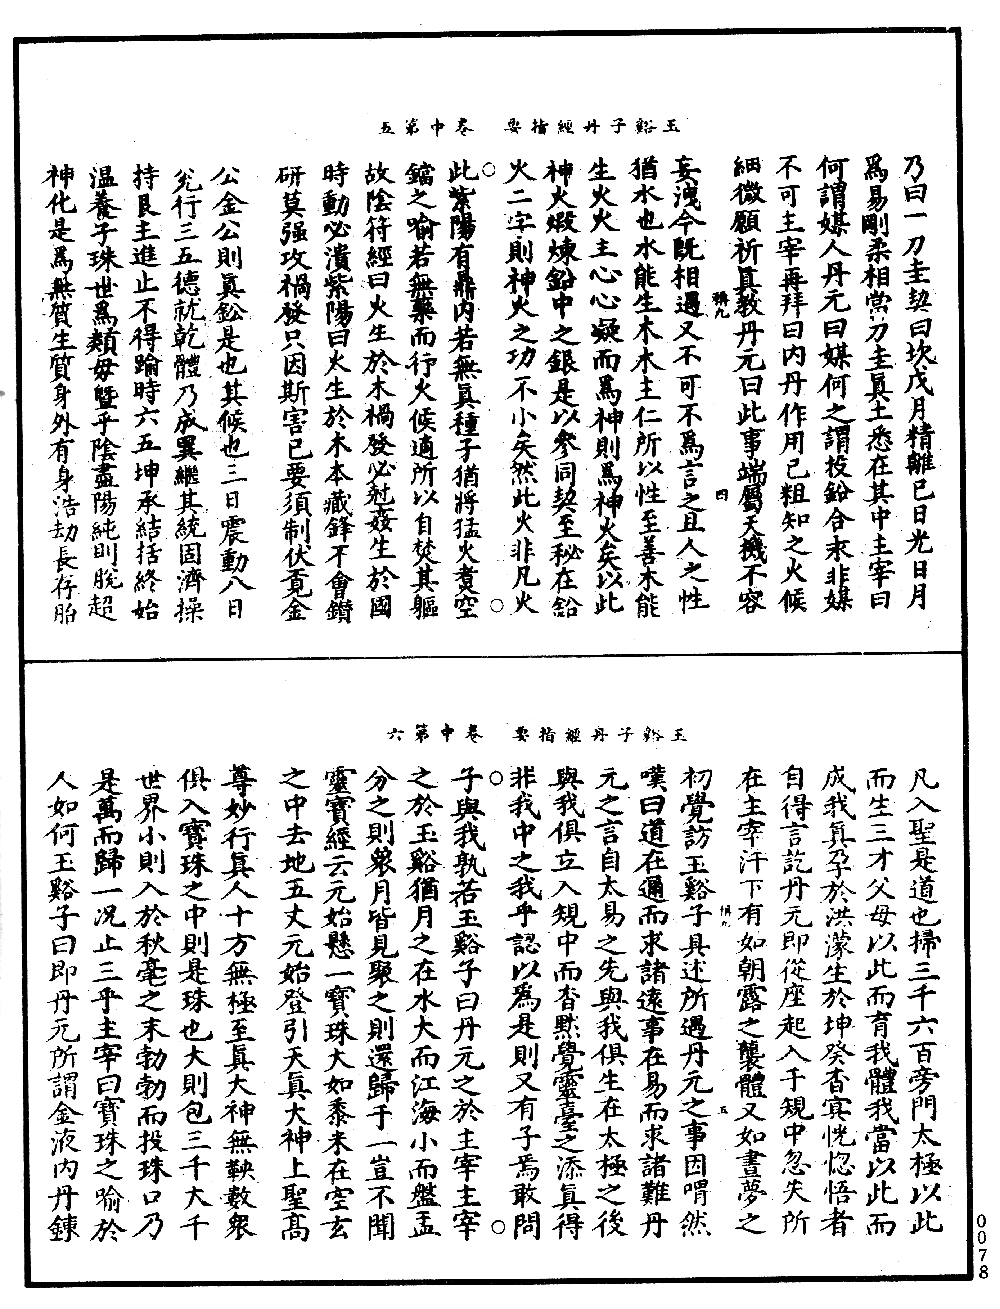 玉谿子丹經指要　卷中第五
乃曰一刀圭契曰坎戊月精離己日光日月
為易剛柔相當刀圭真土悉在其中主宰曰
何謂媒人丹元曰媒何之謂投鉛合汞非媒
不可主宰再拜曰內丹作用已粗知之火候
細微願祈真教丹元曰此事端屬天機不容
妄洩今旣相遇又不可不為言之且人之性
猶水也水能生木木主仁所以性至善木能
生火火主心心凝而為神則為神火矣以此
神火煅煉鉛中之銀是以參同契至秘在鉛
火二字則神火之功不小矣然此火非凡火
此紫陽有鼎內若無真種子猶將猛火煑空
鐺之喻若無藥而行火候適所以自焚其軀
故陰符經曰火生於木禍發必尅姦生於國
時動必潰紫陽曰火生於木本藏鋒不會鑽
研莫强攻禍發只因斯害已要須制伏覔金
公金公則真鉛是也其候也三日震動八日
兊行三五德就乾體乃成巽繼其統固濟操
持艮主進止不得踰時六五坤承結括終始
溫養子珠世為類母曁乎陰盡陽純則脫超
神化是為無質生質身外有身浩劫長存胎
稱九
四
玉谿子丹經指要　卷中第六
凡入聖是道也掃三千六百旁門太極以此
而生三才父母以此而育我體我當以此而
成我真孕於洪濛生於坤癸杳冥恍惚悟者
自得言訖丹元卽從座起入于規中忽失所
在主宰汗下有如朝露之襲體又如晝夢之
初覺訪玉谿子具述所遇丹元之事因喟然
嘆曰道在邇而求諸遠事在易而求諸難丹
元之言自太易之先與我俱生在太極之後
與我俱立入規中而杳默覺靈臺之添真得
非我中之我乎認以為是則又有子焉敢問
子與我孰若玉谿子曰丹元之於主宰主宰
之於玉谿猶月之在水大而江海小而盤盂
分之則衆月皆見聚之則還歸于一豈不聞
靈寶經云元始懸一寶珠大如黍米在空玄
之中去地五丈元始登引天真大神上聖高
尊妙行真人十方無極至真大神無鞅數衆
俱入寶珠之中則是珠也大則包三千大千
世界小則入於秋毫之末勃勃而投珠口乃
是萬而歸一况止三乎主宰曰寶珠之喻於
人如何玉谿子曰卽丹元所謂金液內丹鍊
稱九
五
0078